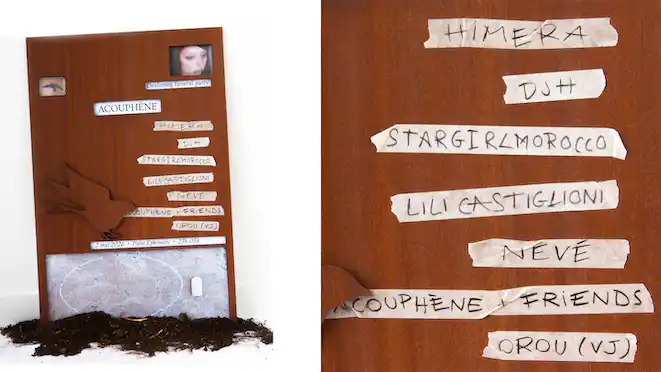 Deafening funeral party
ACOUPHÈNE
HIMERA
DJH
STARGIRLMOROCCO
LILI CASTIGLIONI
NÉVÉ
ACOUPHENE + FRIENDS
OROU (VJ)
2 mai 2026 • Point Ephémère • 23h-05h
HIMERA
DJH
STARGIRLMOROCCO
LILI CASTIGLIONI
NÉVÉ
ACOUPHENE + FRIENDS
OROU (VJ)